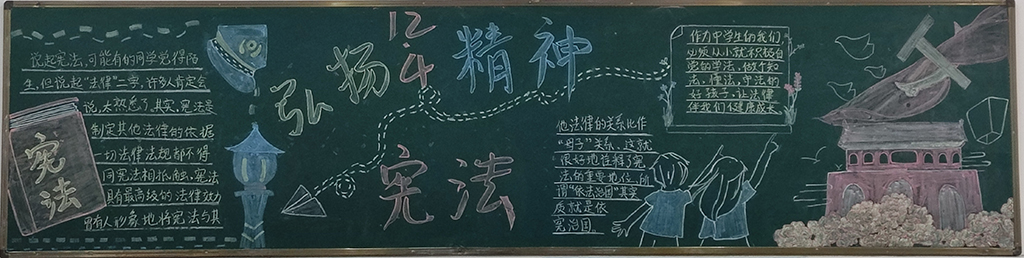 说起宪法,可能有的同学觉得陌
生,但说起“法律”一字,许多人肯定会
说,太熟悉了,其实,宪法是
制定其他法律的依据
一切法律法规都不得
同宪法相抵触,宪法
具有最高级的法律效力
曾有人形象地将宪法与其
宪
法
弘扬
12
4
精神
宪法
他法律的关系比作
“母子”关系,这就
很好地诠释了宪
法的重要地位,所
谓“依法治国”其实
质就是依
宪治国。
作为中学生的我们
必须从小就积极自
觉的学法,做个知
法、懂法、守法的
好孩子,让法律
伴我们健康成长